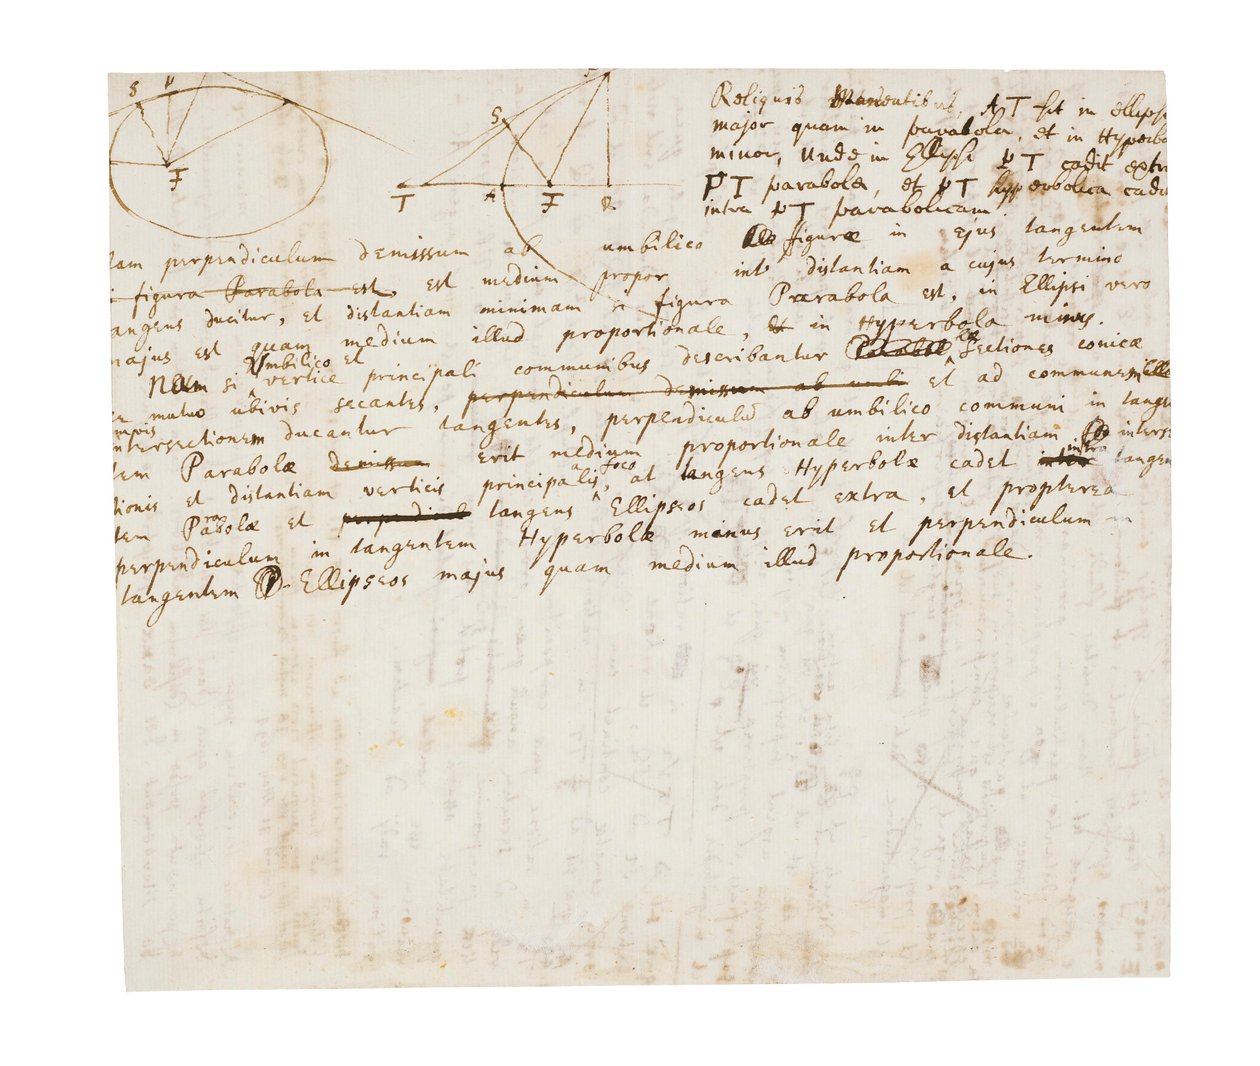 S P
F
S P
T A F R
Reliquis manentibus, AT fit in ellipsi
major quam in parabola, et in Hyperbo
minor, Unde in Ellipsi PT cadit extra
PT parabolæ, et PT hyperbolica cadit
intra PT parabolicam.
tam perpendiculum demissum ab umbilico figuræ in ejus tangentem
i figura Parabola est, est medium propor int distantiam a cujus termino
angens ducitur, et distantiam minimam si figura Pararabola est, in Ellipsi vero
majus est quam medium illud proportionale, et in Hyperbola minus.
Nam si Umbilico et vertice principali communibus describantur Parabol læ sectiones conicæ
se mutuo ubivis secantes, perpendiculum demissum ab umbi et ad communem ille
intersectionem ducantur tangentes, perpendiculum ab umbilico communi in tangen
tem Parabolæ demissum erit medium proportionale inter distantiam interse
tionis et distantiam verticis principalis a foco, at tangens Hyperbolæ cadet inter intra tangen
tem Parabolæ et perpendicul tangens Ellipseos cadet extra, et propterea
perpendiculum in tangentem Hyperbolæ minus erit et perpendiculum in
tangentem P Ellipseos majus quam medium illud proportionale.